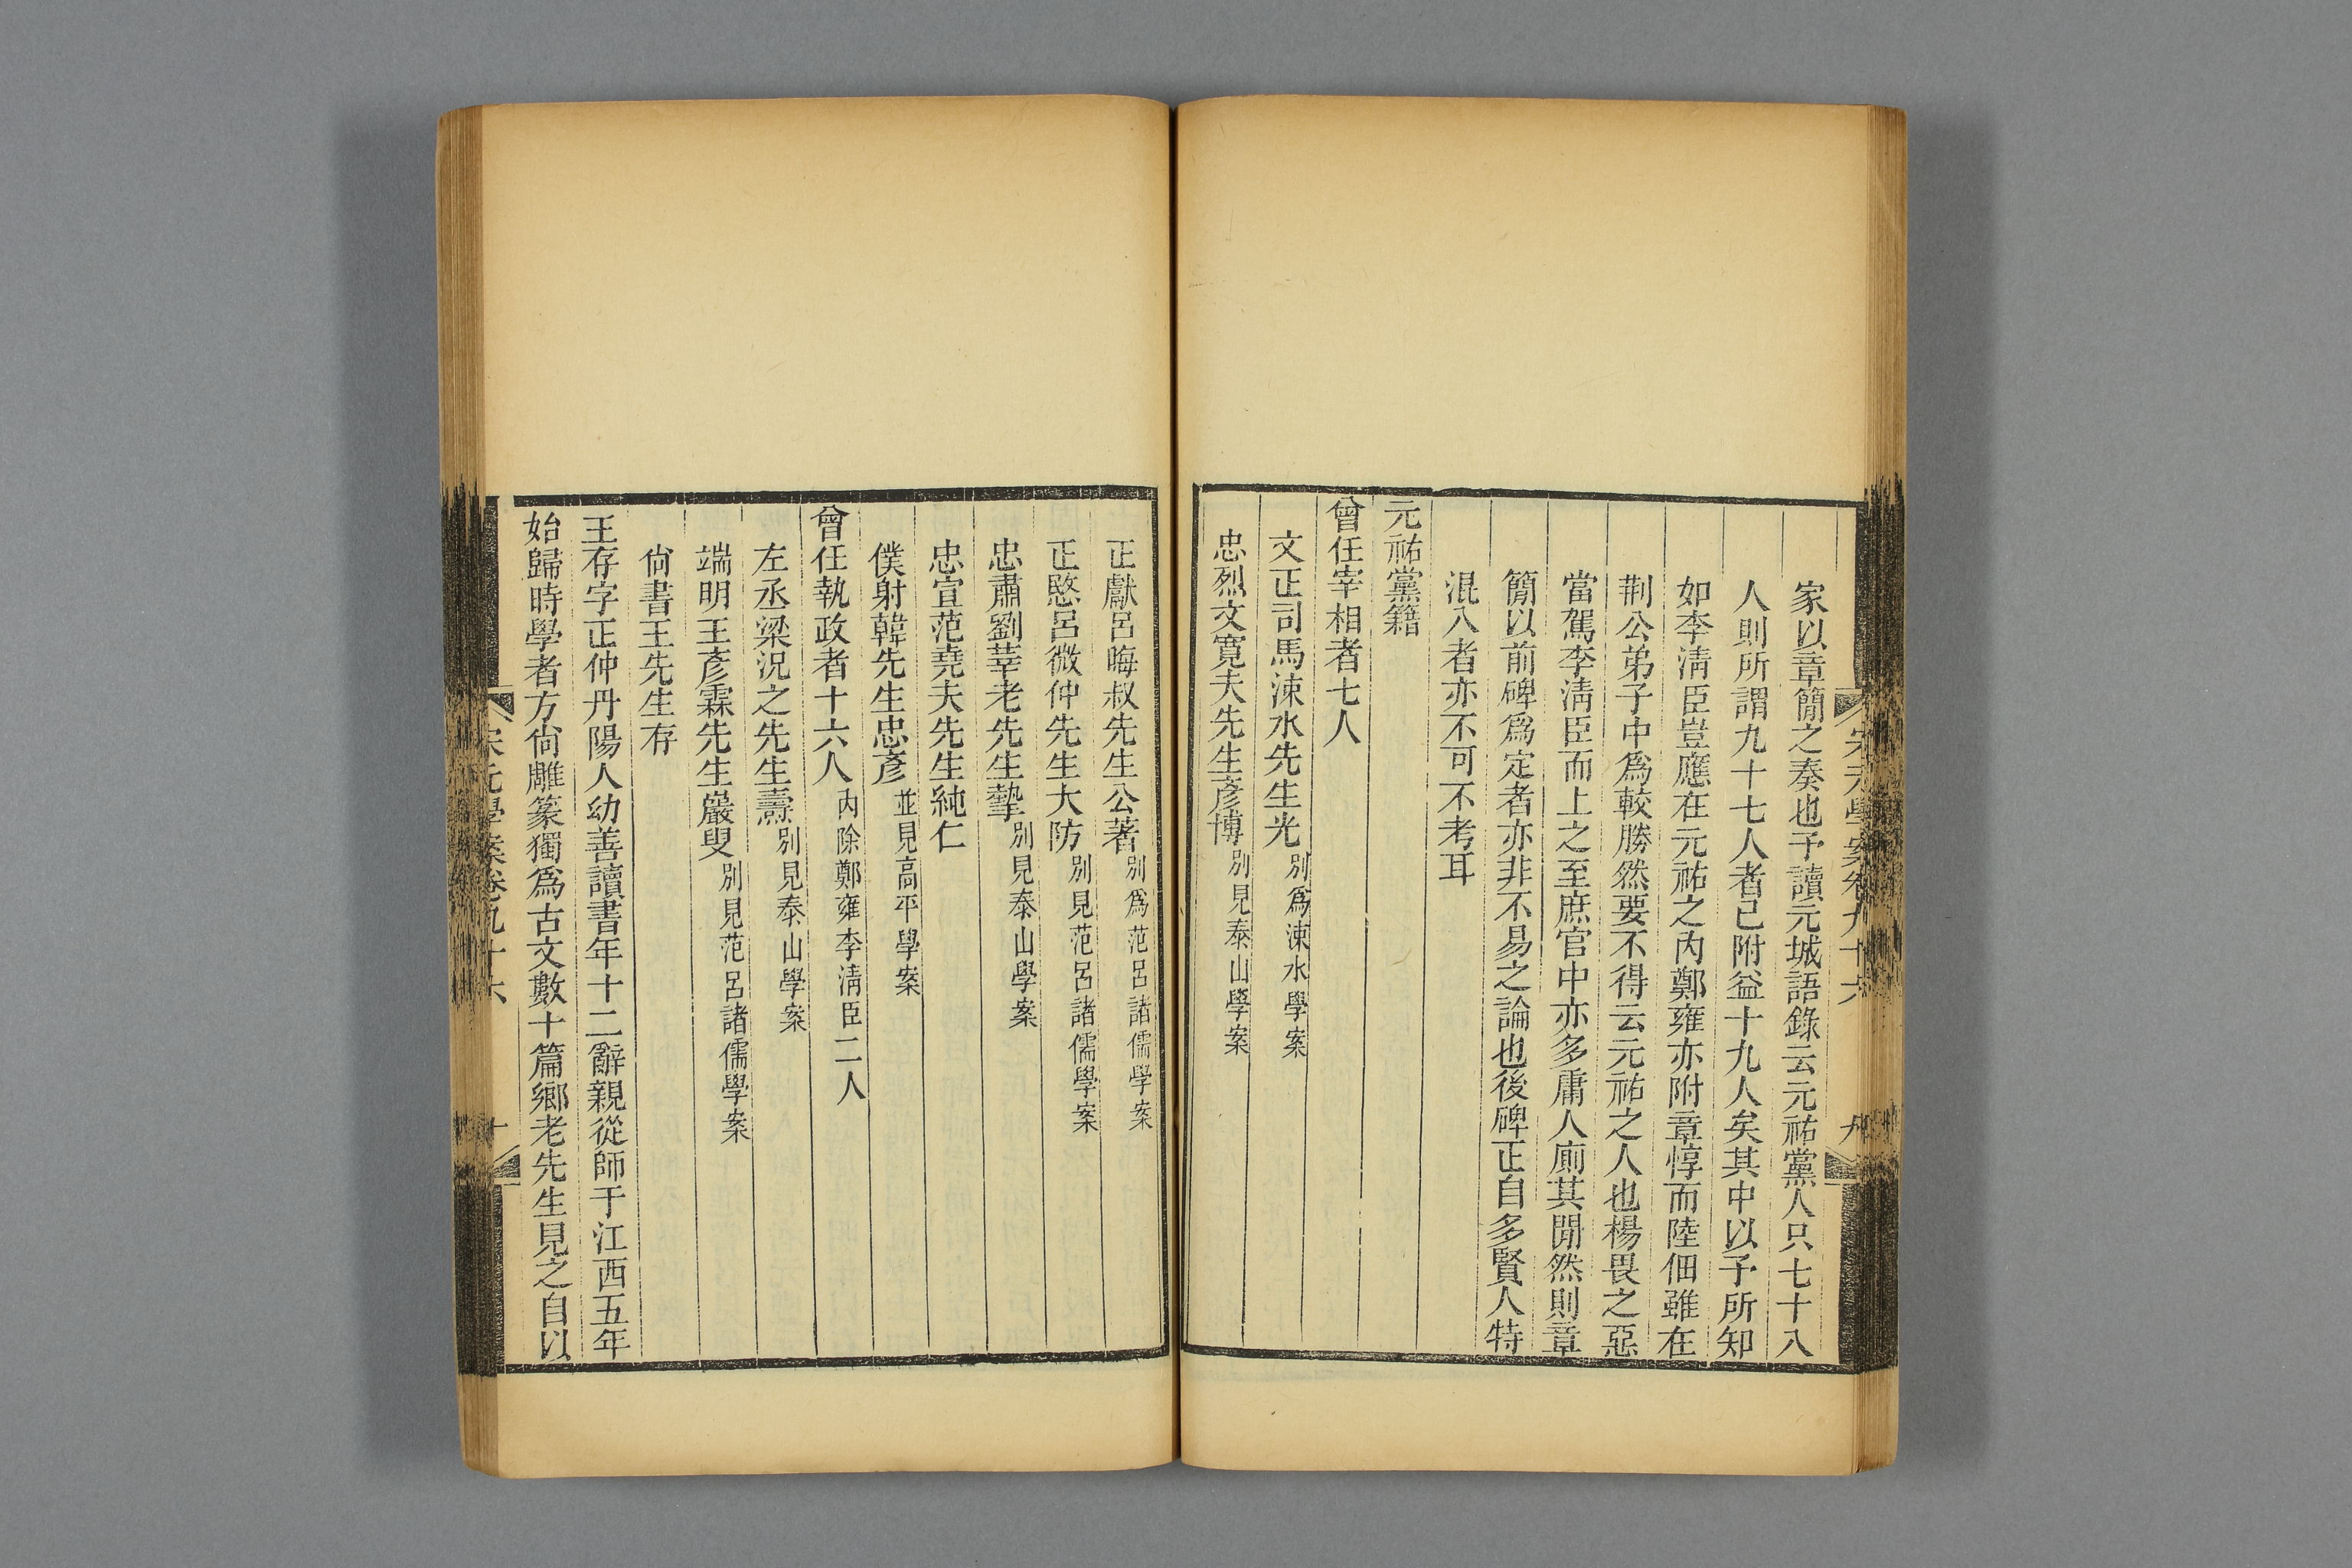 家以章簡之奏也予讀元城語錄云元祐黨人只七十八
人則所謂九十七人者已附益十九人矣其中以予所知
如李淸臣豈應在元祐之內鄭雍亦附章惇而陸佃雖在
荆公弟子中爲較勝然要不得云元祐之人也楊畏之惡
當駕李淸臣而上之至庶官中亦多庸人廁其閒然則章
簡以前碑爲定者亦非不易之論也後碑正自多賢人特
混入者亦不可不考耳
元祐黨籍
曾任宰相者七人
文正司馬涑水先生光別爲涑水學案
忠烈文寬夫先生彥博別見泰山學案
正獻呂晦叔先生公著別爲范呂諸儒學案
正愍呂微仲先生大防別見范呂諸儒學案
忠肅劉莘老先生摯別見泰山學案
忠宣范堯夫先生純仁
僕射韓先生忠彥並見高平學案
曾任執政者十六人內除鄭雍李淸臣二人
左丞梁況之先生燾別見泰山學案
端明王彥霖先生巖叟別見范呂諸儒學案
尙書王先生存
王存字正仲丹陽人幼善讀書年十二辭親從師于江西五年
始歸時學者方尙雕篆獨爲古文數十篇鄉老先生見之自以
宋元學案卷九十六